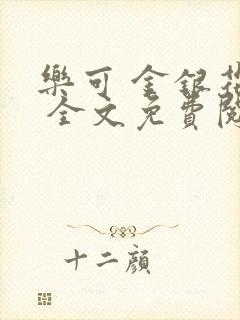 樂可 金銀花
全文免費閱
十二顏